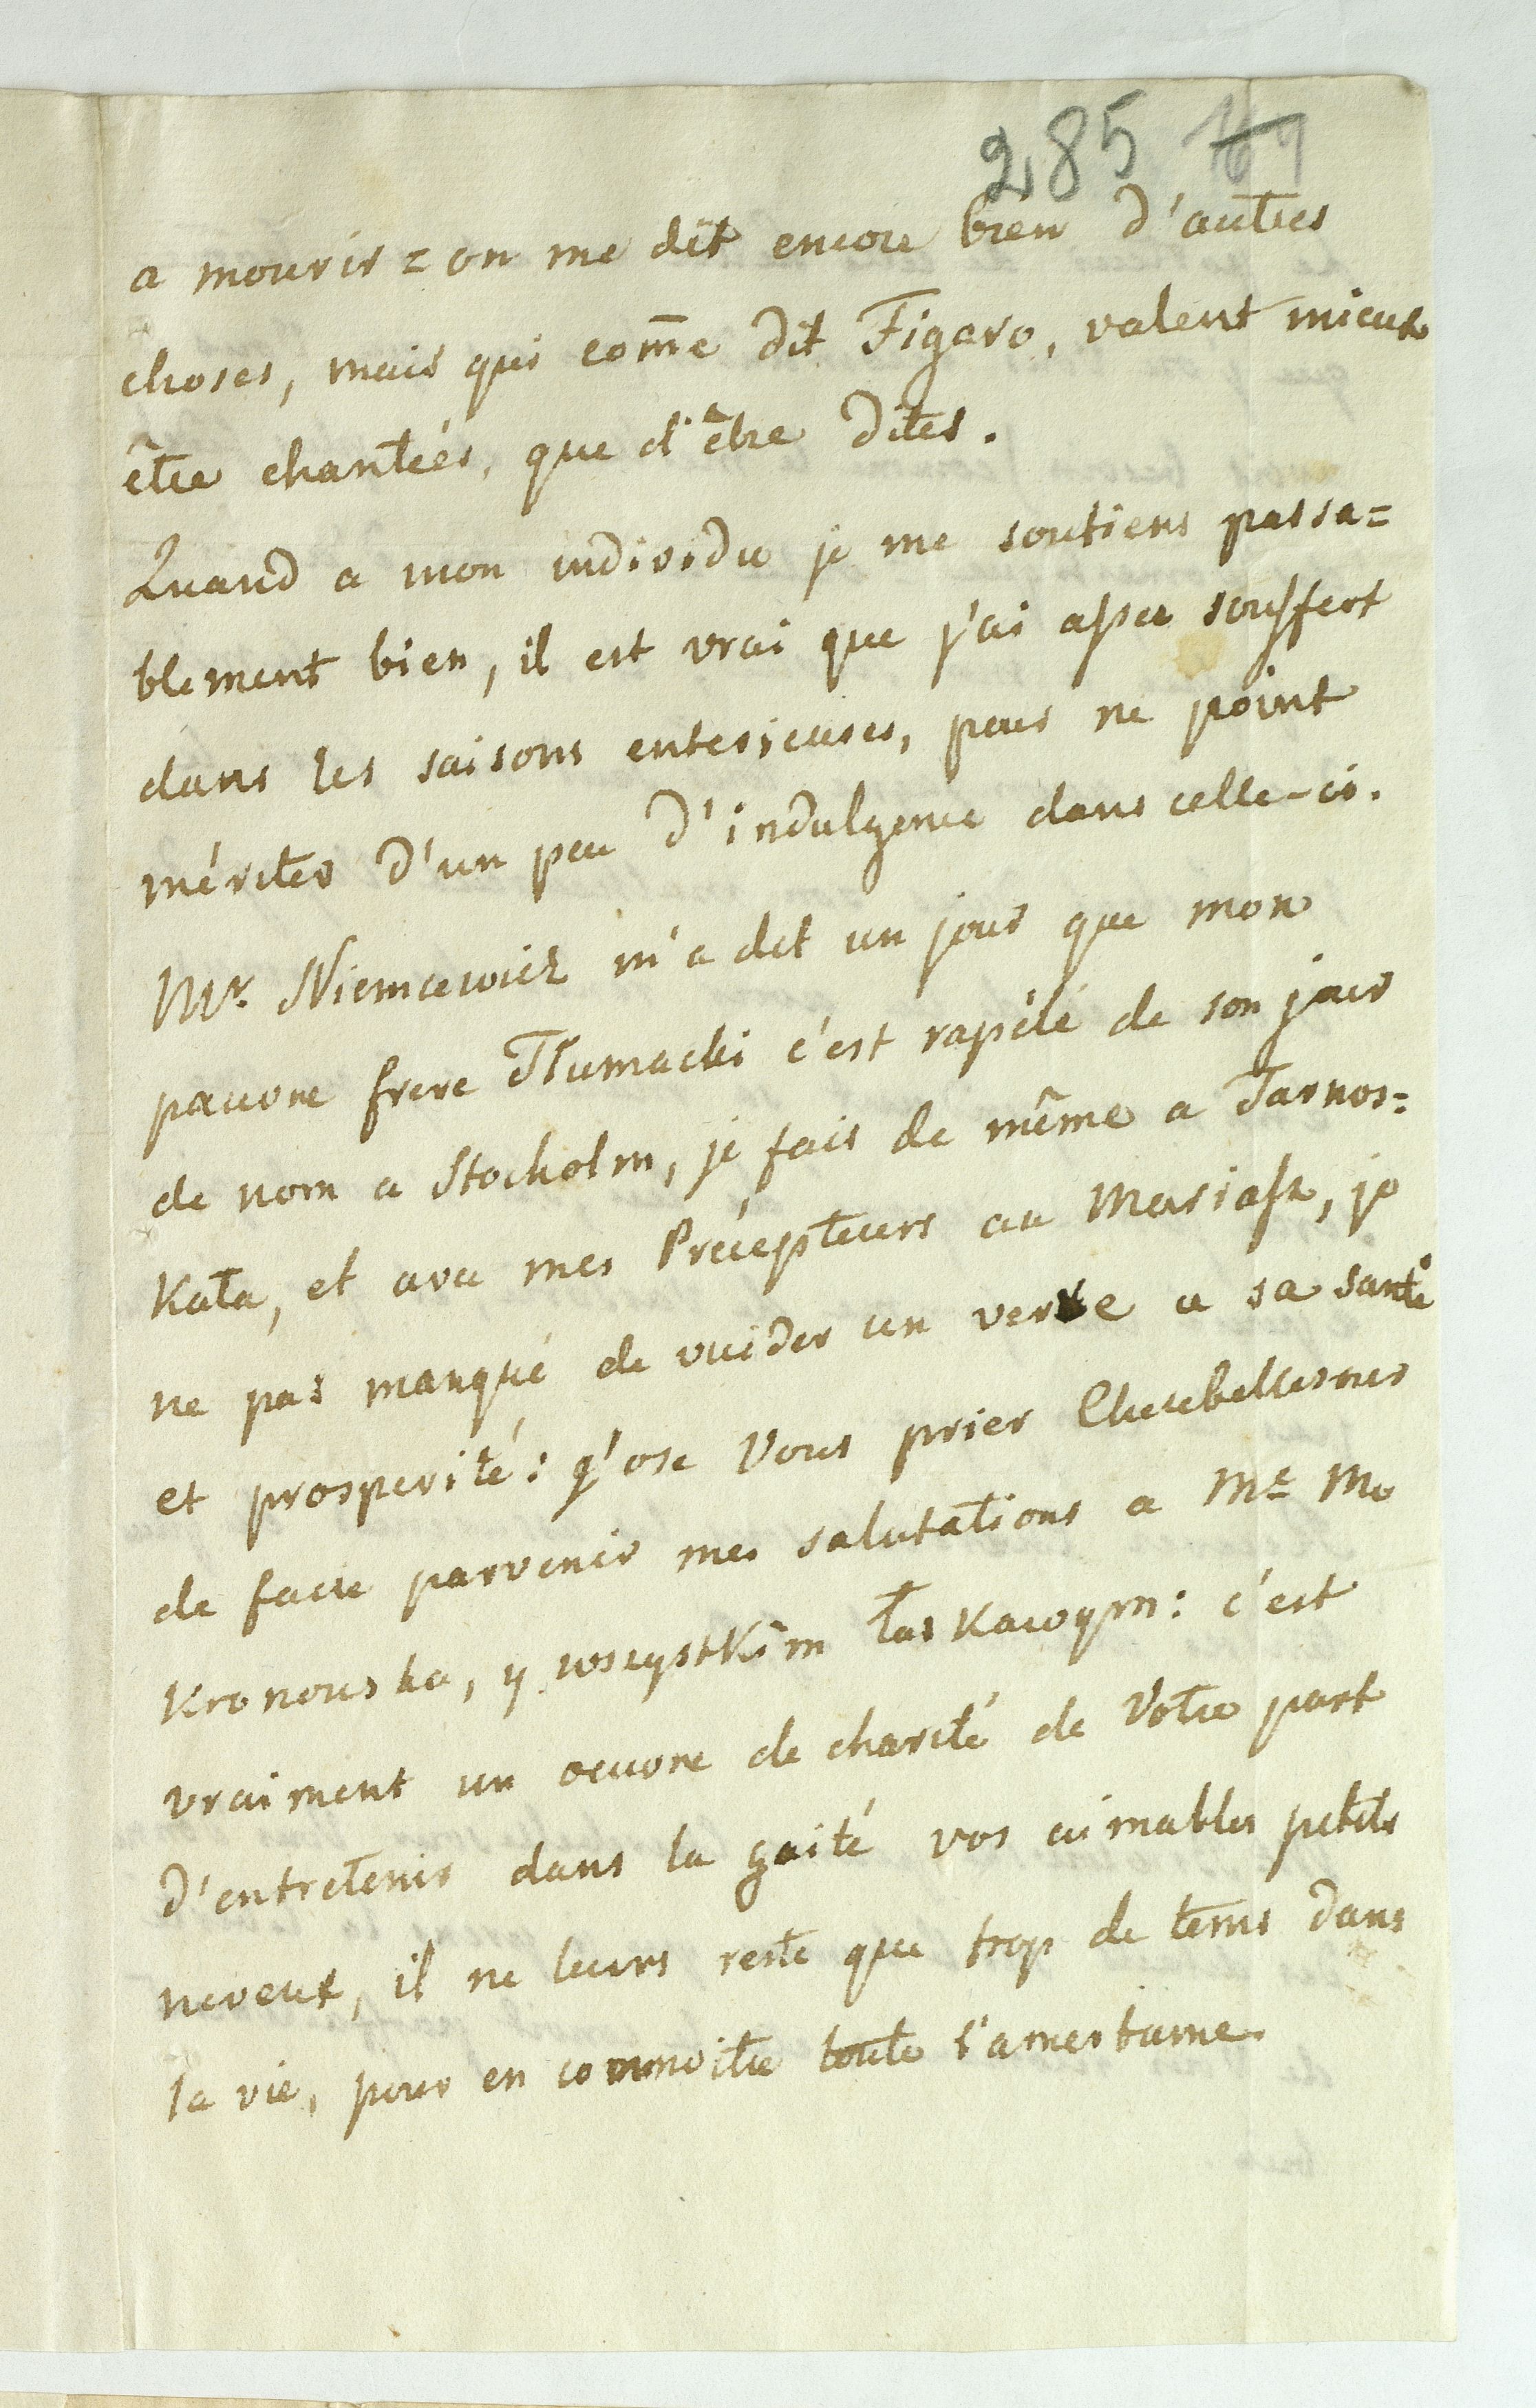 285 169
a mourir = on me dit encore bien d'autres
choses, mais qui com̄e dit Figaro, valent mieux
être chantées, que d'être dites.
Quand a mon individu je me soutiens passa=
blement bien, il est vrai que j'ai assez souffert
dans les saisons enterieures, pour ne point
mériter d'un peu d'indulgence dans celle-ci.
Mr. Niemcewicz m'a dit un jour que mon
pauvre frere Tłumacki c'est rapélé de son jour
de nom a Stocholm, je fais de même a Tarnos=
kała, et avec mes Précepteurs au Masiasz, je
ne pas manqué de vuider un verre a sa santé
et prosperité: j'ose Vous prier
de faire parvenir mes salutations a Me Mo
kronouska, y wszystkim łaskawym: c'est
vraiment un oeuvre de charité de Votre part
d'entretenir dans la gaité vos aimables petits
neveux, il ne leurs reste que trop de tems dans
la vie, pour en connoitre toute l'amertume.